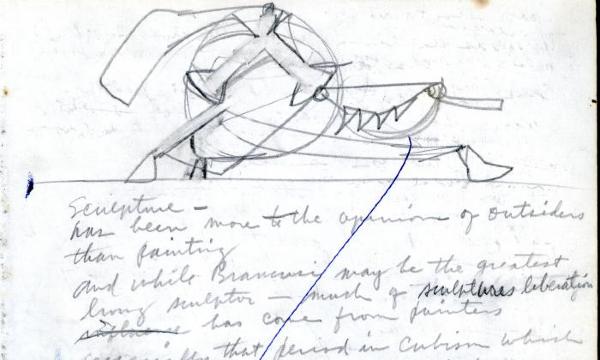 Sculpture –
has been more to the opinion of outsiders
than painting
and while Brancusi may be the greatest
living sculptor – much of sculptures liberation
has come from painters
especially that period in Cubism which